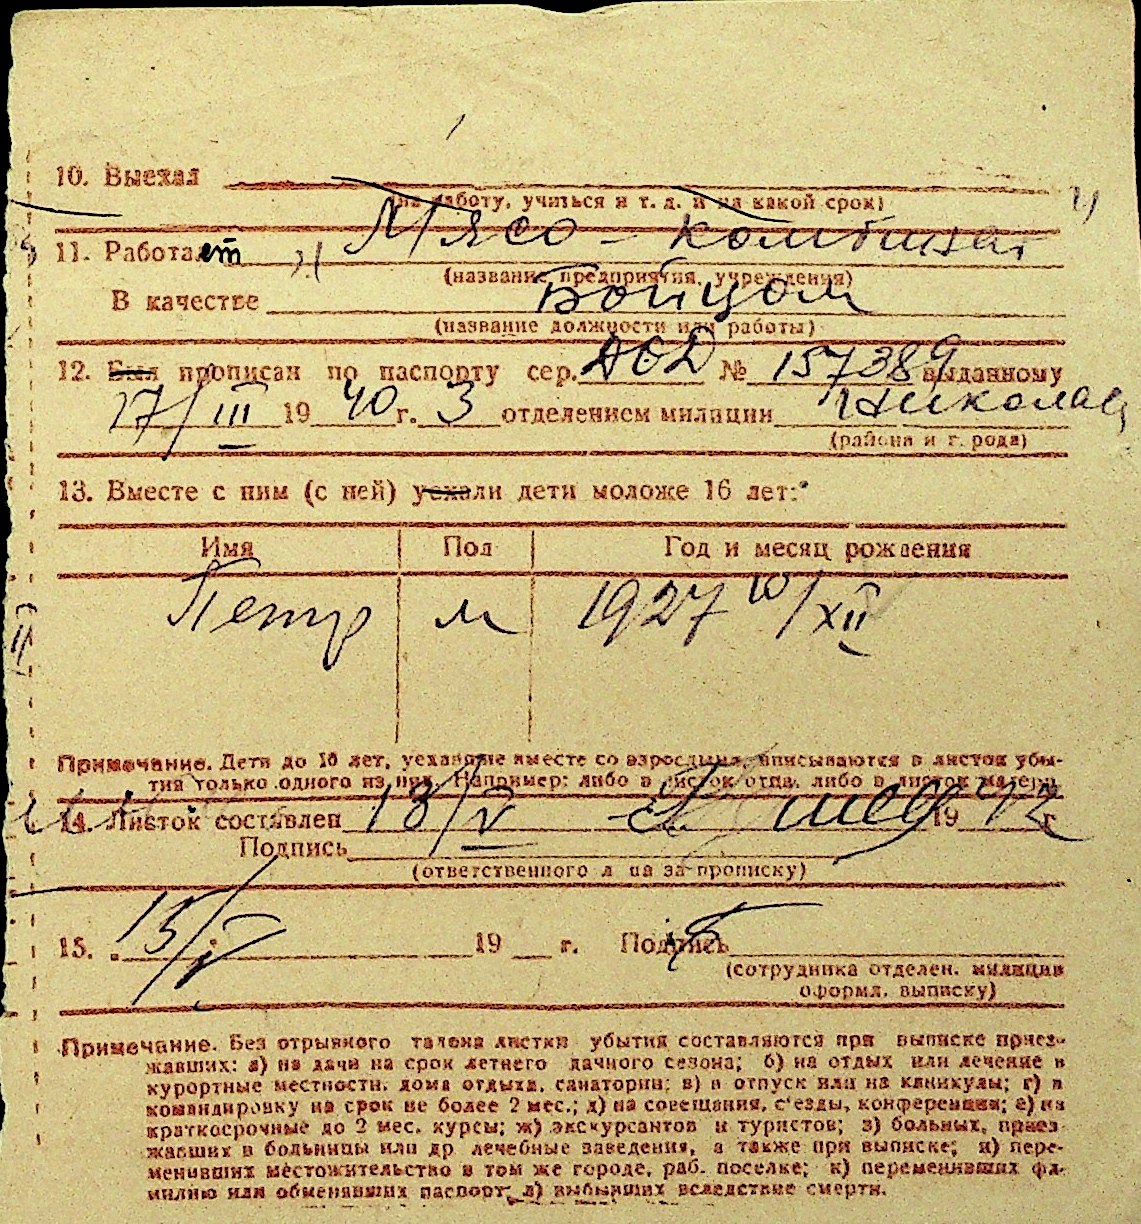 10. Выехал
(на работу, учиться и т. д. и на какой срок)
11. Работает „ Мясо-комбинат "
(название предприятия, учреждения)
В качестве Бойцом
(название должности или работы)
12. Был прописан по паспорту сер. № 157389 выданному
17/III 1940 г. 3 отделением милиции Николаев
(района и г. рода)
13. Вместе с ним (с ней) уехали дети моложе 16 лет:
Имя Пол Год и месяц рождения
Петр м 1927 10/XII
Примечание. Дети до 16 лет, уехавшие вместе со взрослыми, вписываются в листок убы-
тия только одного из них. Например: либо в листок отца, либо в листок матери
14. Листок составлен 13/V 1942 г
Подпись
(ответственного л ца за прописку)
15. 15/V 19 г. Подпись
(сотрудника отделен. милиции
оформл. выписку)
Примечание. Без отрывного талона листки убытия составляются при выписке приез-
жавших: а) на дачи на срок летнего дачного сезона; б) на отдых или лечение в
курортные местности, дома отдыха, санатории; в) в отпуск или на каникулы; г) в
командировку на срок не более 2 мес.; д) на совещания, с'езды, конференции; е) на
краткосрочные до 2 мес. курсы; ж) экскурсантов и туристов; з) больных, приез
жавших в больницы или др лечебные заведения, а также при выписке; и) пере-
менивших местожительство в том же городе, раб. поселке; к) переменивших фа-
милию или обменявших паспорт; л) выбывших вследствие смерти.